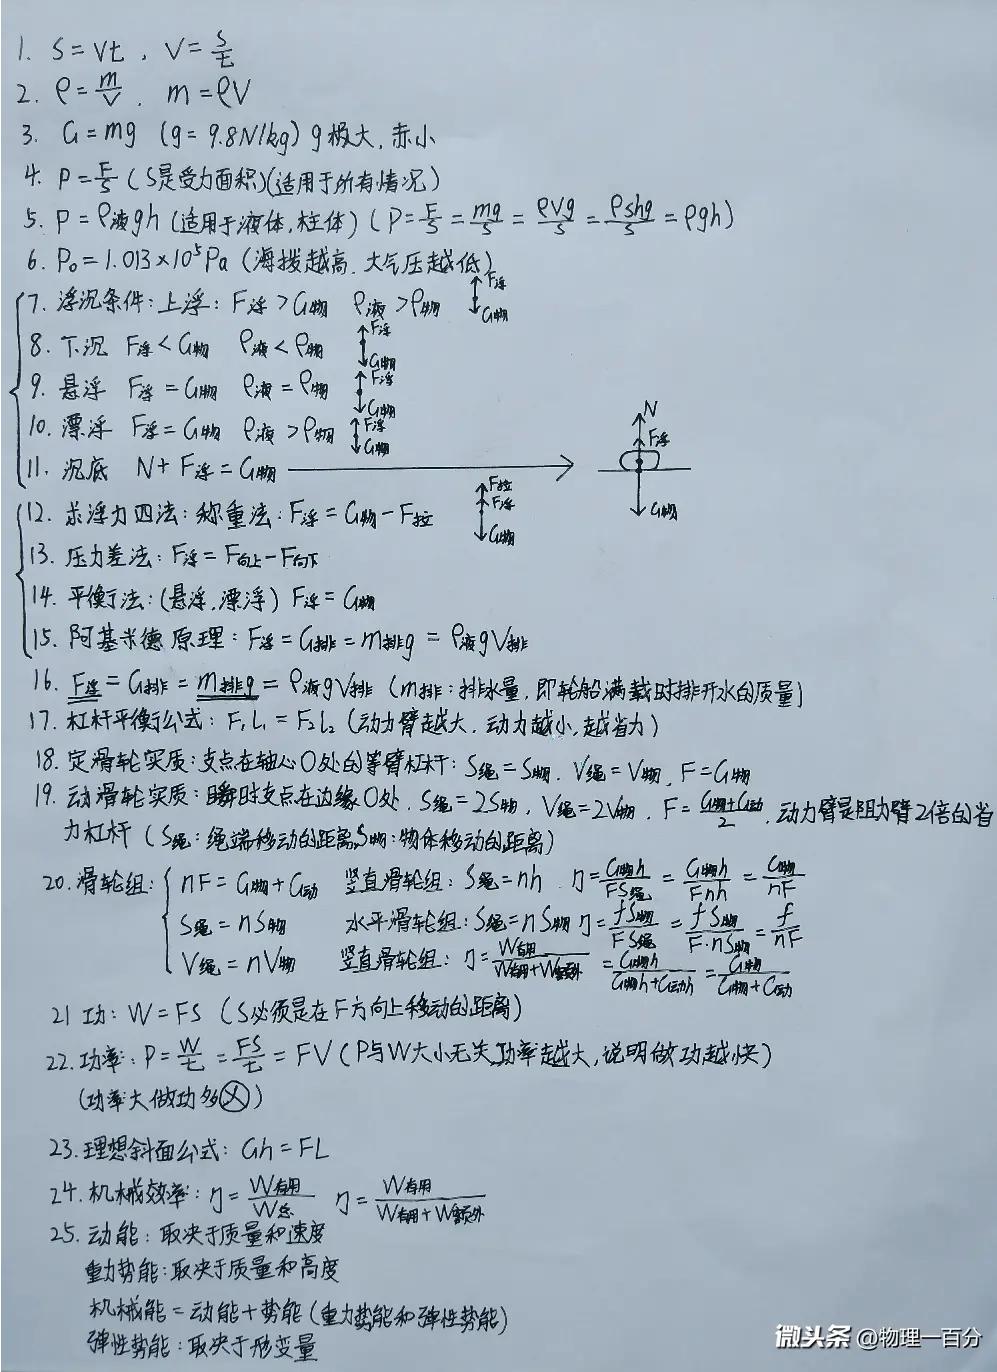 1. S=Vt, V=S/t
2. ρ=m/V, m=ρV
3. G=mg (g=9.8N/kg) g极大,赤小
4. P=F/S (S是受力面积)(适用于所有情况)
5. P=ρ液gh (适用于液体,柱体) (P=F/S=mg/S=ρVg/S=ρshg/S=ρgh)
6. P₀=1.013×10⁵Pa (海拨越高,大气压越低)
7. 浮沉条件:上浮:F浮>G物 ρ液>ρ物 F浮 G物
8. 下沉 F浮<G物 ρ液<ρ物 F浮 G物
9. 悬浮 F浮=G物 ρ液=ρ物 F浮 G物
10. 漂浮 F浮=G物 ρ液>ρ物 F浮 G物
11. 沉底 N+F浮=G物 N F浮 G物
12. 求浮力四法:称重法:F浮=G物-F拉 F拉 F浮 G物
13. 压力差法:F浮=F向上-F向下
14. 平衡法:(悬浮,漂浮) F浮=G物
15. 阿基米德原理:F浮=G排=m排g=ρ液gV排
16. F浮=G排=m排g=ρ液gV排 (m排:排水量,即轮船满载时排开水的质量)
17. 杠杆平衡公式:F₁L₁=F₂L₂ (动力臂越大,动力越小,越省力)
18. 定滑轮实质:支点在轴心O处的等臂杠杆:S绳=S物,V绳=V物,F=G物
19. 动滑轮实质:瞬时支点在边缘O处,S绳=2S物,V绳=2V物,F=(G物+G动)/2,动力臂是阻力臂2倍的省
力杠杆 (S绳:绳端移动的距离,S物:物体移动的距离)
20. 滑轮组:nF=G物+G动 竖直滑轮组:S绳=nh,η=G物h/FS绳=G物h/Fnh=G物/nF
S绳=nS物 水平滑轮组:S绳=nS物 η=fS物/FS绳=fS物/F·nS物=f/nF
V绳=nV物 竖直滑轮组:η=W有用/(W有用+W额外)=G物h/(G物h+G动h)=G物/(G物+G动)
21 功:W=FS (S必须是在F方向上移动的距离)
22. 功率:P=W/t=FS/t=FV (P与W大小无关,功率越大,说明做功越快)
(功率大做功多⊗)
23. 理想斜面公式:Gh=FL
24. 机械效率:η=W有用/W总 η=W有用/(W有用+W额外)
25. 动能:取决于质量和速度
重力势能:取决于质量和高度
机械能=动能+势能(重力势能和弹性势能)
弹性势能:取决于形变量
微头条 @物理一百分